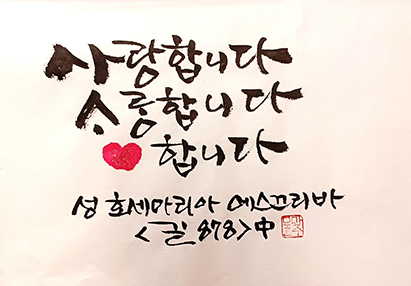 사랑합니다
소중합니다
합니다
성 호세마리아 에스끄리바
<길 878>中